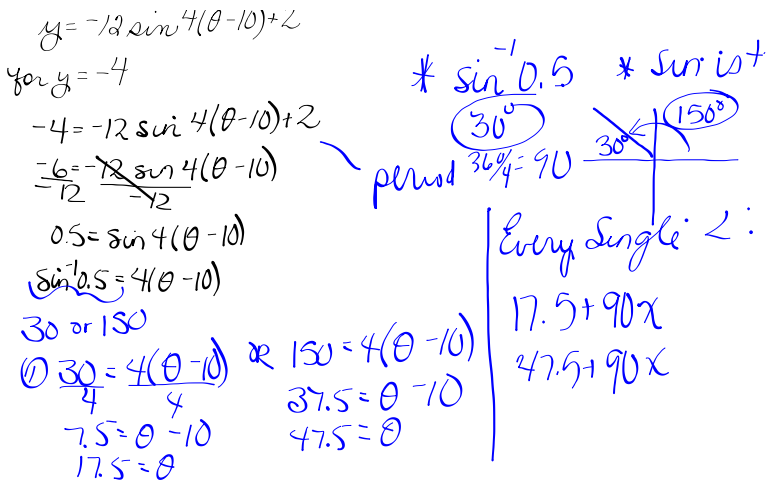 y = -12 sin 4(θ-10)+2
for y = -4
-4 = -12 sin 4(θ-10)+2
-6 = -12 sin 4(θ-10)
-12 -12
0.5 = sin 4(θ-10)
sin⁻¹0.5 = 4(θ-10)
30 or 150
① 30 = 4(θ-10)
4 4
7.5 = θ -10
17.5 = θ
OR 150 = 4(θ-10)
37.5 = θ -10
47.5 = θ
* sin⁻¹ 0.5
30°
period 360/4 = 90
* sin is +
150°
30°
Every Single <:
17.5 + 90x
47.5 + 90x